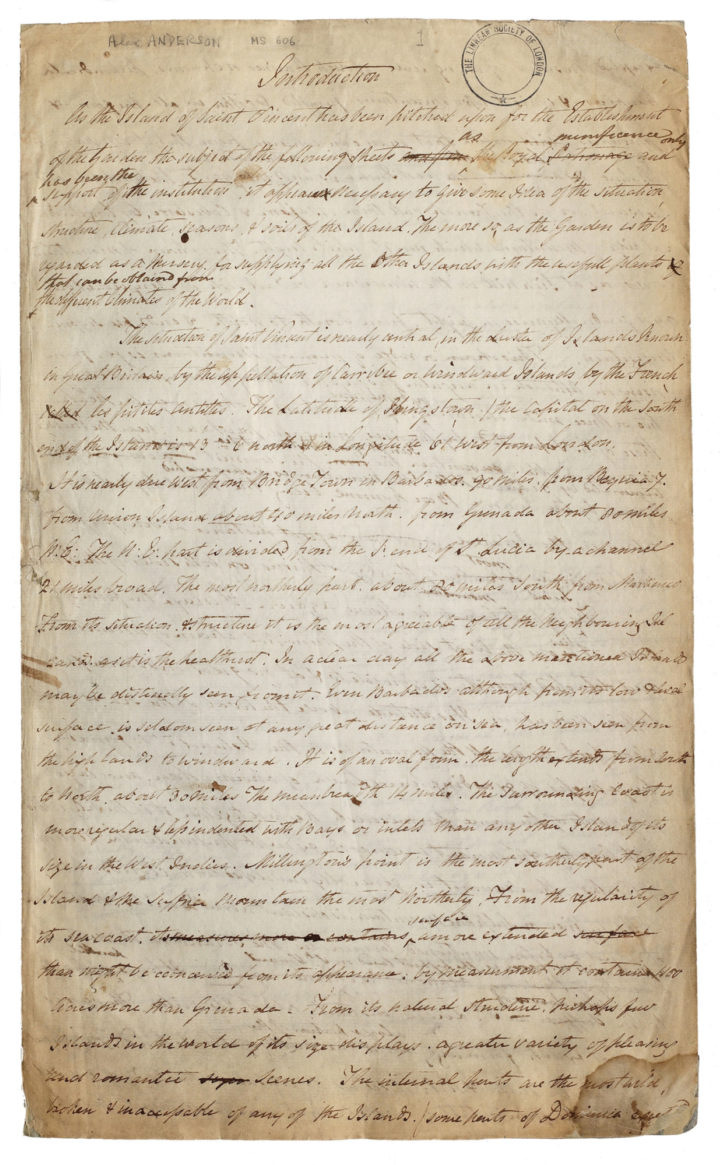 Alex ANDERSON MS 606 1
THE LINNEAN SOCIETY OF LONDON
Introduction
As the Island of Saint Vincent has been pitched upon for the Establishment
as munificence only
of the Garden the subject of the following sheets the Royal Patronage and
has been the
support of the institution it appears necessary to give some Idea of the situation
structure, climate, seasons, & soils of the Island. The more so, as the Garden is to be
regarded as a Nursery for supplying all the Other Islands with the usefull plants of
that can be obtained from
the different Climates of the World.
The situation of Saint Vincent is nearly central, in the Cluster of Islands Known
in great Britain, by the appellation of Carribee or Windward Islands, by the French
called les petites Antilles. The Latitude of Kingstown, (the Capital on the South
end of the Island) is 13 6 north & in Longitude 61 West from London.
It is nearly due West from Bridge Town in Barbados. 90 miles. from Bequia 7.
from Union Island about 40 miles North. from Grenada about 80 miles
N:E: The N:E: part is divided from the S. end of St Lucia by a channel
21 miles broad. The most northerly part. about miles South from Martinico
From its situation & structure it is the most agreeable of all the Neighbouring Isl
ands as it is the healthiest. In a clear day all the above mentioned Islands
may be distinctly seen from it. Even Barbados although from its low & level
surface, is seldom seen at any great distance on sea, has been seen from
the high lands to windward. It is of an oval form. the length extends from South
to North, about 30 miles The mean breadth 14 miles. The Surrounding Coast is
more regular & less indented with Bays or inlets than any other Island of its
size in the West Indies. Millingtons point is the most southerly part of the
Island & the Suffria Mountain the most Northerly. From the regularity of
surface
its sea coast, its measures more or contains a more extended surface
than might be conceived from its appearance; by measurement it contains 400
Acres more than Grenada. From its natural structure, perhaps few
Islands in the world of its size displays a greater variety of pleasing
and romantic scenes. The internal parts are the most wild,
broken & inaccessable of any of the Islands. (some parts of Dominica